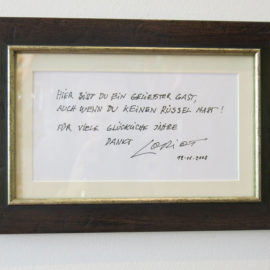 HIER BIST DU EIN GELIEBTER GAST,
AUCH WENN DU KEINEN RÜSSEL HAST!
FÜR VIELE GLÜCKLICHE JAHRE
DANKT LORIOT